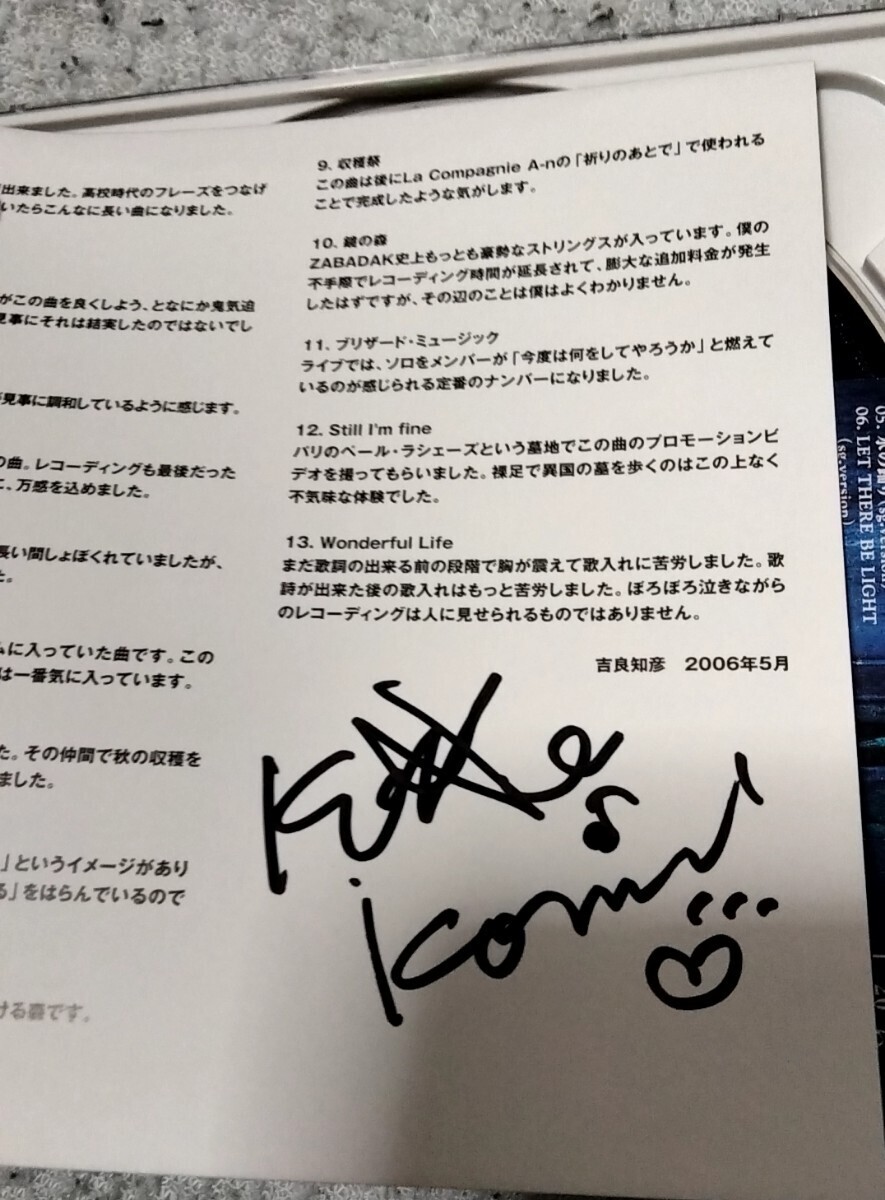 出来ました。高校時代のフレーズをつなげ
いたらこんなに長い曲になりました。
がこの曲を良くしよう、となにか鬼気迫
見事にそれは結実したのではないでし
見事に調和しているように感じます。
の曲。レコーディングも最後だった
に、万感を込めました。
長い間しょぼくれていましたが、
た。
ムに入っていた曲です。この
は一番気に入っています。
た。その仲間で秋の収穫を
ました。
」というイメージがあり
る」をはらんでいるので
ける森です。
9. 収穫祭
この曲は後にLa Compagnie A-nの「祈りのあとで」で使われる
ことで完成したような気がします。
10. 鏡の森
ZABADAK史上もっとも豪勢なストリングスが入っています。僕の
不手際でレコーディング時間が延長されて、膨大な追加料金が発生
したはずですが、その辺のことは僕はよくわかりません。
11. ブリザード・ミュージック
ライブでは、ソロをメンバーが「今度は何をしてやろうか」と燃えて
いるのが感じられる定番のナンバーになりました。
12. Still I'm fine
パリのペール・ラシェーズという墓地でこの曲のプロモーションビ
デオを撮ってもらいました。裸足で異国の墓を歩くのはこの上なく
不気味な体験でした。
13. Wonderful Life
まだ歌詞の出来る前の段階で胸が震えて歌入れに苦労しました。歌
詩が出来た後の歌入れはもっと苦労しました。ぼろぼろ泣きながら
のレコーディングは人に見せられるものではありません。
吉良知彦　2006年5月
06. LET THERE BE LIGHT
(sg.version)